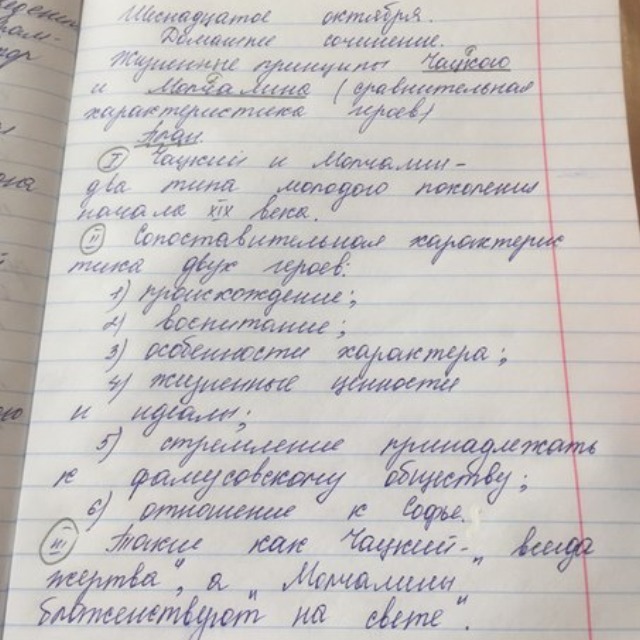 Шестнадцатое октября.
Домашнее сочинение.
Жизненные принципы Чацкого
и Молчалина (сравнительная
характеристика героев)
План.
I Чацкий и Молчалин -
два типа молодого поколения
начала XIX века.
II Сопоставительная характерис
тика двух героев:
1) происхождение;
2) воспитание;
3) особенности характера;
4) жизненные ценности
и идеалы;
5) стремление принадлежать
к фамусовскому обществу;
6) отношение к Софье.
III Такие как Чацкий - „всегда
жертва", а Молчалины
блаженствуют „на свете".